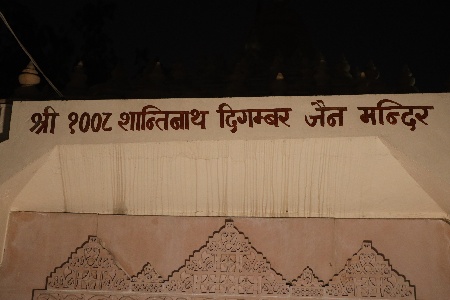 श्री १००८ शान्तिनाथ दिगम्बर जैन मन्दिर